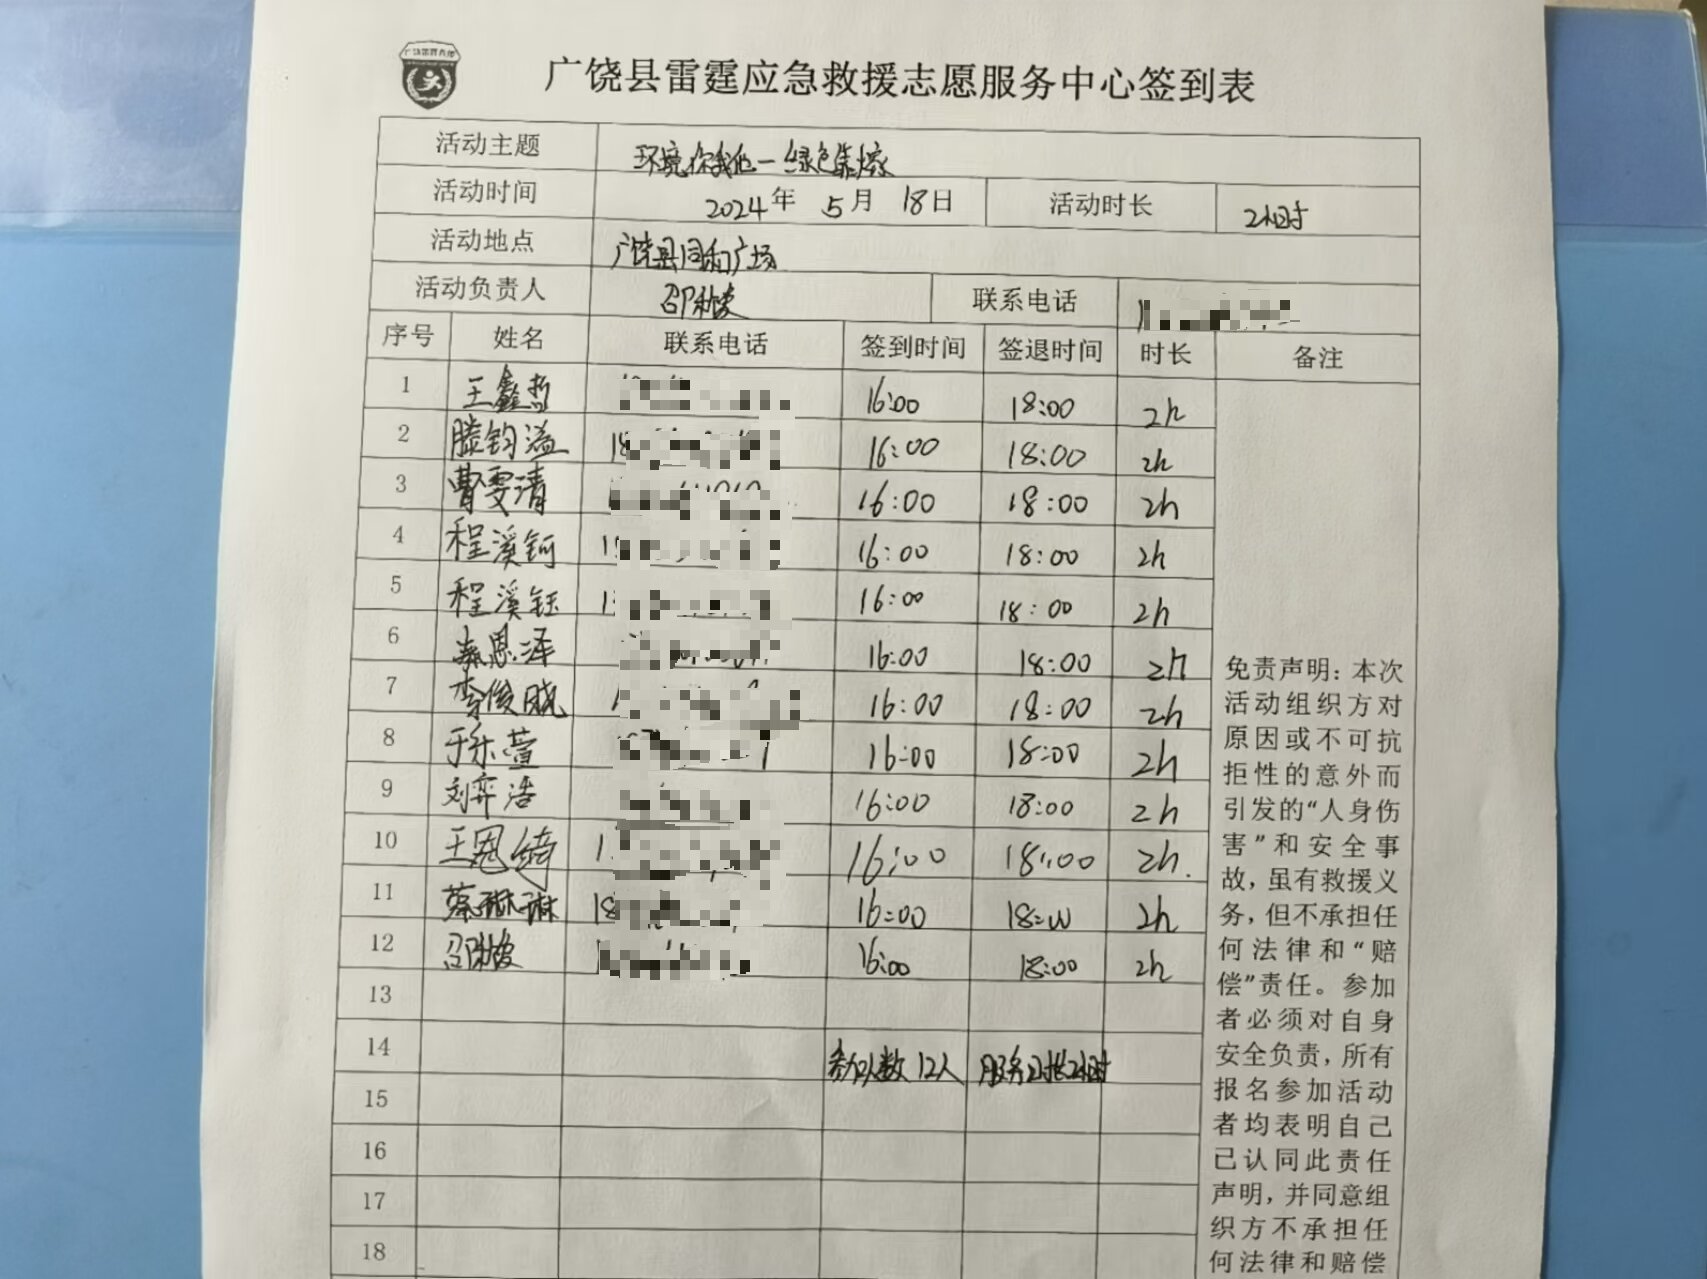 广饶县雷霆应急救援志愿服务中心签到表
活动主题 环境你我他一绿色集嫁
活动时间 2024年 5月 18日 活动时长 2小时
活动地点 广饶县同和广场
活动负责人 联系电话
序号 姓名 联系电话 签到时间 签退时间 时长 备注
1 王鑫哲 16:00 18:00 2h
2 滕钧溢 16:00 18:00 2h
3 曹雯清 16:00 18:00 2h
4 程溪钶 16:00 18:00 2h
5 程溪钰 16:00 18:00 2h
6 思泽 16:00 18:00 2h
7 李俊晓 16:00 18:00 2h
8 于乐萱 16:00 18:00 2h
9 刘弈浩 16:00 18:00 2h
10 王冠绮 16:00 18:00 2h.
11 蔡琳琳 16:00 18:00 2h
12 16:00 18:00 2h
13
14 参加人数12人 服务时长2小时
15
16
17
18
免责声明:本次
活动组织方对
原因或不可抗
拒性的意外而
引发的“人身伤
害”和安全事
故,虽有救援义
务,但不承担任
何法律和“赔
偿”责任。参加
者必须对自身
安全负责,所有
报名参加活动
者均表明自己
已认同此责任
声明,并同意组
织方不承担任
何法律和赔偿